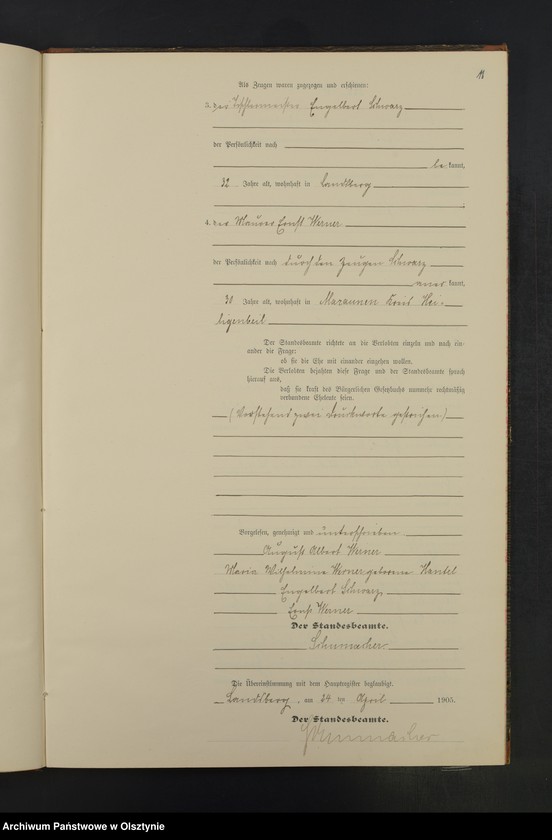 11
Als Zeugen waren zugezogen und erschienen:
3. der Töpfermeister Engelbert Schwarz
der Persönlichkeit nach
be kannt,
32 Jahre alt, wohnhaft in Landsberg
4. der Maurer Ernst Werner
der Persönlichkeit nach durch den Zeugen Schwarz
aner kannt,
30 Jahre alt, wohnhaft in Maraunen Kreis Hei-
ligenbeil
Der Standesbeamte richtete an die Verlobten einzeln und nach ein-
ander die Frage:
ob sie die Ehe mit einander eingehen wollen.
Die Verlobten bejahten diese Frage und der Standesbeamte sprach
hierauf aus,
daß sie kraft des Bürgerlichen Gesetzbuchs nunmehr rechtmäßig
verbundene Eheleute seien.
(Vorstehend zwei Druckworte gestrichen)
Vorgelesen, genehmigt und unterschrieben
August Albert Werner
Maria Wilhelmine Werner geborene Hantel
Engelbert Schwarz
Ernst Werner
Der Standesbeamte.
Schumacher
Die Übereinstimmung mit dem Hauptregister beglaubigt.
Landsberg, am 24 ten April 1905.
Der Standesbeamte.
Schumacher
Archiwum Państwowe w Olsztynie